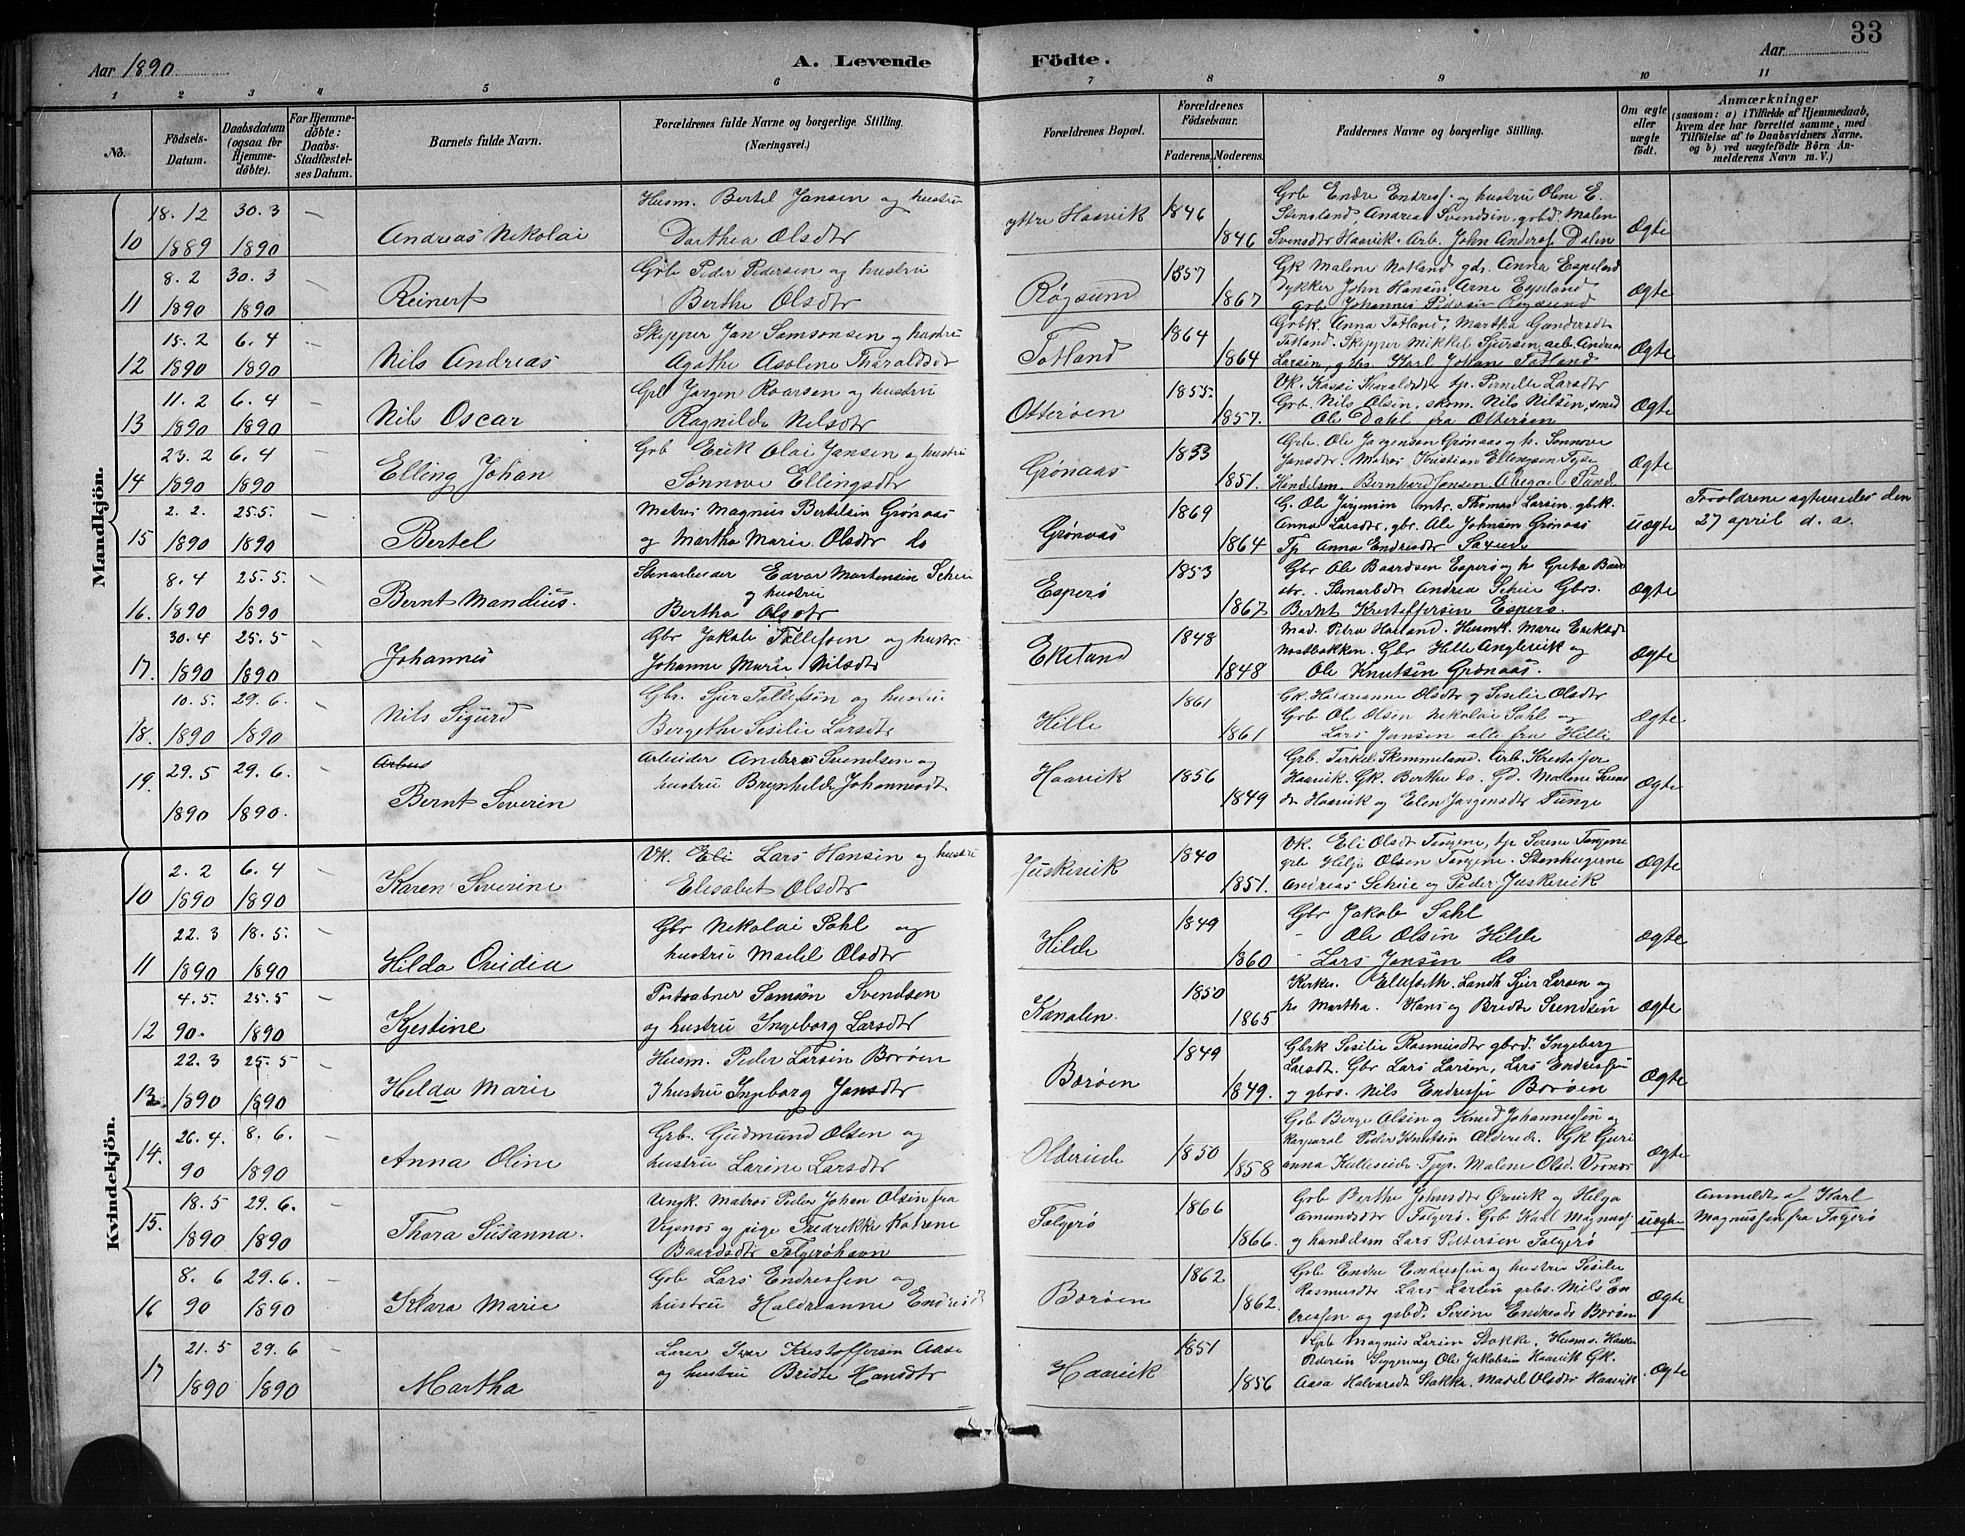 33
Aar 1890
A. Levende Födte.
Aar
1 2 3 4 5 6 7 8 9 10 11
No.
Födsels-Datum.
Daabsdatum (ogsaa for Hjemmedöbte).
For Hjemmedöbte: Daabs-Stadfæstelses Datum.
Barnets fulde Navn.
Forældrenes fulde Navne og borgerlige Stilling. (Næringsvei.)
Forældrenes Bopæl.
Forældrenes Födselsaar.
Faderens. Moderens.
Faddernes Navne og borgerlige Stilling.
Om ægte eller uægte födt.
Anmærkninger (saasom: a) i Tilfælde af Hjemmedaab, hvem der har forrettet samme, med Tilföielse af to Daabsvidners Navne. og b) ved uægtefödte Börn Anmelderens Navn m. V.)
Mandkjön.
10 18. 12 1889 30. 3 1890 — Andreas Nikolai
Husm. Bertel Jansen og hustru
Dorthea Olsdtr
yttre Haavik 1846 1846
Grb Endre Endress. og hustru Oline E.
Stensland, Andreas Svendsen, grbd. Malene
Svensdtr Haavik. Arb. John Anderss. Dalen
Ægte
11 8. 2 1890 30. 3 1890 — Reinert
Grb Peder Pedersen og hustru
Berthe Olsdtr
Røgsund 1857 1867
Gk Malene Notland gds. Anna Espeland
Dykker John Hansen, Arne Espeland
grb. Johannes Pedersen Røgsund
Ægte
12 15. 2 1890 6. 4 1890 — Nils Andreas
Skipper Jan Samsonsen og hustru
Agathe Asoline Tharaldsdr
Totland 1864 1864
Grbk. Anna Totland, Martha Gundersdt
Totland. Skipper Mikkel Sjursen, arb. Andreas
Larsen, gbs. Karl Johan Totland
Ægte
13 11. 2 1890 6. 4 1890 — Nils Oscar
Jørgen Roarsen og hustru
Ragnilde Nilsdtr
Otterøen 1855 1857
tp. Pernille Larsdtr
Grb. Nils Olsen, skom. Nils Nilsen, smed
Ole Dahl fra Otterøen
Ægte
14 23. 2 1890 6. 4 1890 — Elling Johan
Grb Erik Olai Jansen og hustru
Sønnove Ellingsdtr
Grønaas 1853 1851
Grb. Ole Jørgensen Grønaas og h. Sønnove
Jansdtr. Matros Kristian Ellingsen
Handelsm. Bernhard Jensen
Ægte
15 2. 2. 1890 25.5. 1890 — Bertel
Matros Magnus Bertelsen Grønaas
og Martha Marie Olsdtr do
Grønaas 1869 1864
G. Ole Jørgensen mtr. Thomas Larsen, gbrk.
Anna Larsdtr, gbr. Ole Johnsen Grønaas
Tp Anna Endresdtr
uægte
Foreldrene egteviedes den
27 april d. a.
16. 8. 4 1890 25. 5. 1890 — Bernt Mandius.
Stenarbeider Edvar Martensen Scheie
og hustru
Bertha Olsdtr
Esperø 1853 1867
Gbr Ole Baardsen Esperø og h Greta Baards
dtr. Stenarbdr Andreas Scheie Gbrs.
Bernt Kristoffersen Esperø.
Ægte
17. 30. 4 1890 25. 5 1890 — Johannes
Gbr Jakob Tollefsen og hustr.
Johanne Marie Nilsdtr
Ekeland 1848 1848
Mad. Petra Husmk. Marie Eriksdt
Nostbakken. Gbr Helle Anglevik og
Ole Knutsen Grønaas.
Ægte
18. 10. 5. 1890 29. 6. 1890 — Nils Sigurd
Gbr. Sjur Tollefsen og hustru
Bergethe Sesilie Larsdtr
Hille 1861 1861
Gk. Haldrianne Olsdtr g Sesilie Olsdtr
Grb Ole Olsen Nikolai Sahl og
Lars Jansen alle fra Hille
Ægte
19. 29. 5 1890 29. 6. 1890. — Bernt Severin
Arbeider Andreas Svendsen og
hustru Brynhilde Johannesdt
Haavik 1856 1849
Grb. Torkel Skimmeland. Arb. Kristofer
Haavik. Gk. Berthe do. Gd. Malene Svens
dtr Haavik og Elen Jørgensdtr Tunge
Ægte
Kvindekjön.
10 2. 2 1890 6. 4 1890 — Karen Severine
Vk. Eli Lars Hansen og hustru
Elisabet Olsdtr
Juskevik 1840 1851.
Vk. Eli Olsdt Tangene, tp Serine Tangene
grb Helje Olsen Tangene. Stenhuggerne
Andreas Scheie og Peder Juskevik
Ægte
11 22. 3 1890 18. 5. 1890 — Hilda Ovidia
Gbr Nikolai Sahl og
hustru Madel Olsdtr
Hilde 1849 1860
Gbr Jakob Sahl
- Ole Olsen Hilde
- Lars Jansen do
Ægte
12 4. 5. 90. 25. 5 1890 — Kjestine
Postaabner Samson Svendsen
og hustru Ingeborg Larsdtr
Kanalen. 1850 1865
Kirkes. Ellefseth. Landh Sjur Larsen og
h. Martha. Hans og Bridte Svendsen
Ægte
13. 22. 3 1890 25. 5 1890 — Helda Marie
Husm. Peder Larsen Borøen
og hustru Ingeborg Jansdtr
Borøen 1849 1849.
Gbrk Sesilie Rasmusdtr gbrd. Ingeborg
Larsdt. Gbr Lars Larsen, Lars Endressen
og gbrs. Nils Endressen Borøen
Ægte
14. 26. 4. 90 8. 6. 1890 — Anna Oline
Grb. Gudmund Olsen og
hustru Larine Larsdtr
Oldereide 1850 1858
Gbb Berge Olsen og Knud Johannessen og
Korporal Peder Knutsen Aldereide. Gk Guri
anna Kulleseide Tpp. Malene Olsd.
Ægte
15. 18. 5 1890 29. 6. 1890 — Thora Susanna.
Ungk. Matros Peder Johan Olsen fra
Vigsnes og pige Fredrikke Katrine
Baardsdtr Folgerøhavn
Folgerø 1866 1866.
Grb Berthe Johnsdtr Ørevik og Helga
Amundsdtr Folgerø. Gbb Karl Magnuss
og handelsm Lars Pettersen Folgerø
uægte
Anmeldt af Karl
Magnussen fra Folgerø
16 8. 6 90 29. 6. 1890 — Klara Marie
Grb Lars Endressen og
hustru Haldrianne Endresdt
Borøen 1862 1862.
Grb Endre Endressen og hustru Sesilie
Rasmusdt Lars Larsen grbs. Nils En
dressen og gsbd. Serine Endresdt Borøen
Ægte
17 21. 5 1890 29. 6 1890 — Martha
Lærer Iver Kristoffersen Aase
og hustru Bridte Hansdtr
Haavik 1851 1856
Grb Magnus Larsen Stokke. Husms. Haaken
Pedersen Ole Jakobsen Haavik Gk.
Aasa Halvorsdt Stokke. Madel Olsdtr Haavik
Ægte